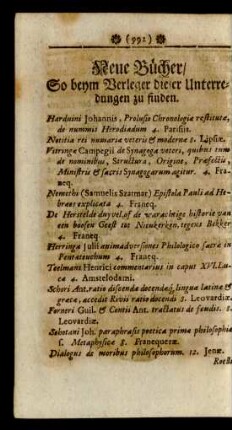 (992)
Neue Bücher/
So beym Verleger dieser Unterre-
dungen zu finden.
Harduini Johannis, Prolusio Chronologiæ restitutæ,
de nummis Herodiadum 4. Parisiis.
Notitia rei numariæ veteris & modernæ 8. Lipsiæ.
Vitringæ Campegii de Synagoga veteri, quibus tum
de nominibus, Structura, Origine, Præfectis,
Ministris & sacris Synagogarum agitur. 4. Fra-
neq.
Nemethi (Samuelis Szatmar) Epistola Pauli ad He-
bræos explicata 4. Franeq.
De Herstelde duyvel, of de warachtige historie van
een boosen Geest tot Nieukerken, tegens Bekker
4. Franeq.
Herringa Julii animadversiones Philologicæ sacræ in
Pentateuchum 4. Franeq.
Teelmans Henrici commentarius in caput XVI. Lu-
cæ 4. Amstelodami.
Scheri Ant. ratio discendæ docendæq; linguæ latinæ &
græcæ, accedit Kevii ratio docendi 8. Leovardiæ.
Forneri Guil. & Contii Ant. tractatus de feudis. 8.
Leovardiæ.
Schotani Joh. paraphrasis poetica primæ philosophiæ
s. Metaphysicæ 8. Franequeræ.
Dialogus de moribus philosophorum. 12. Jenæ.